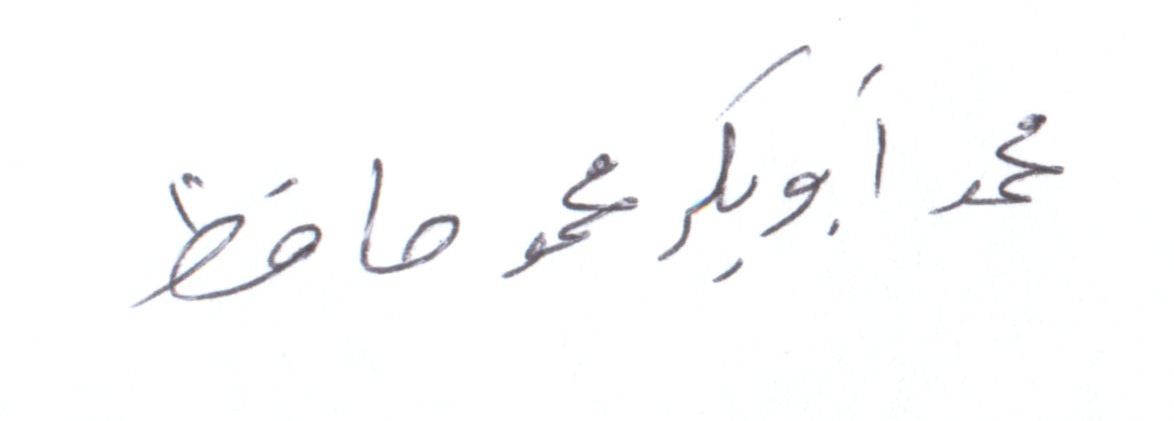 محمد أبو بكر محمد حافظ